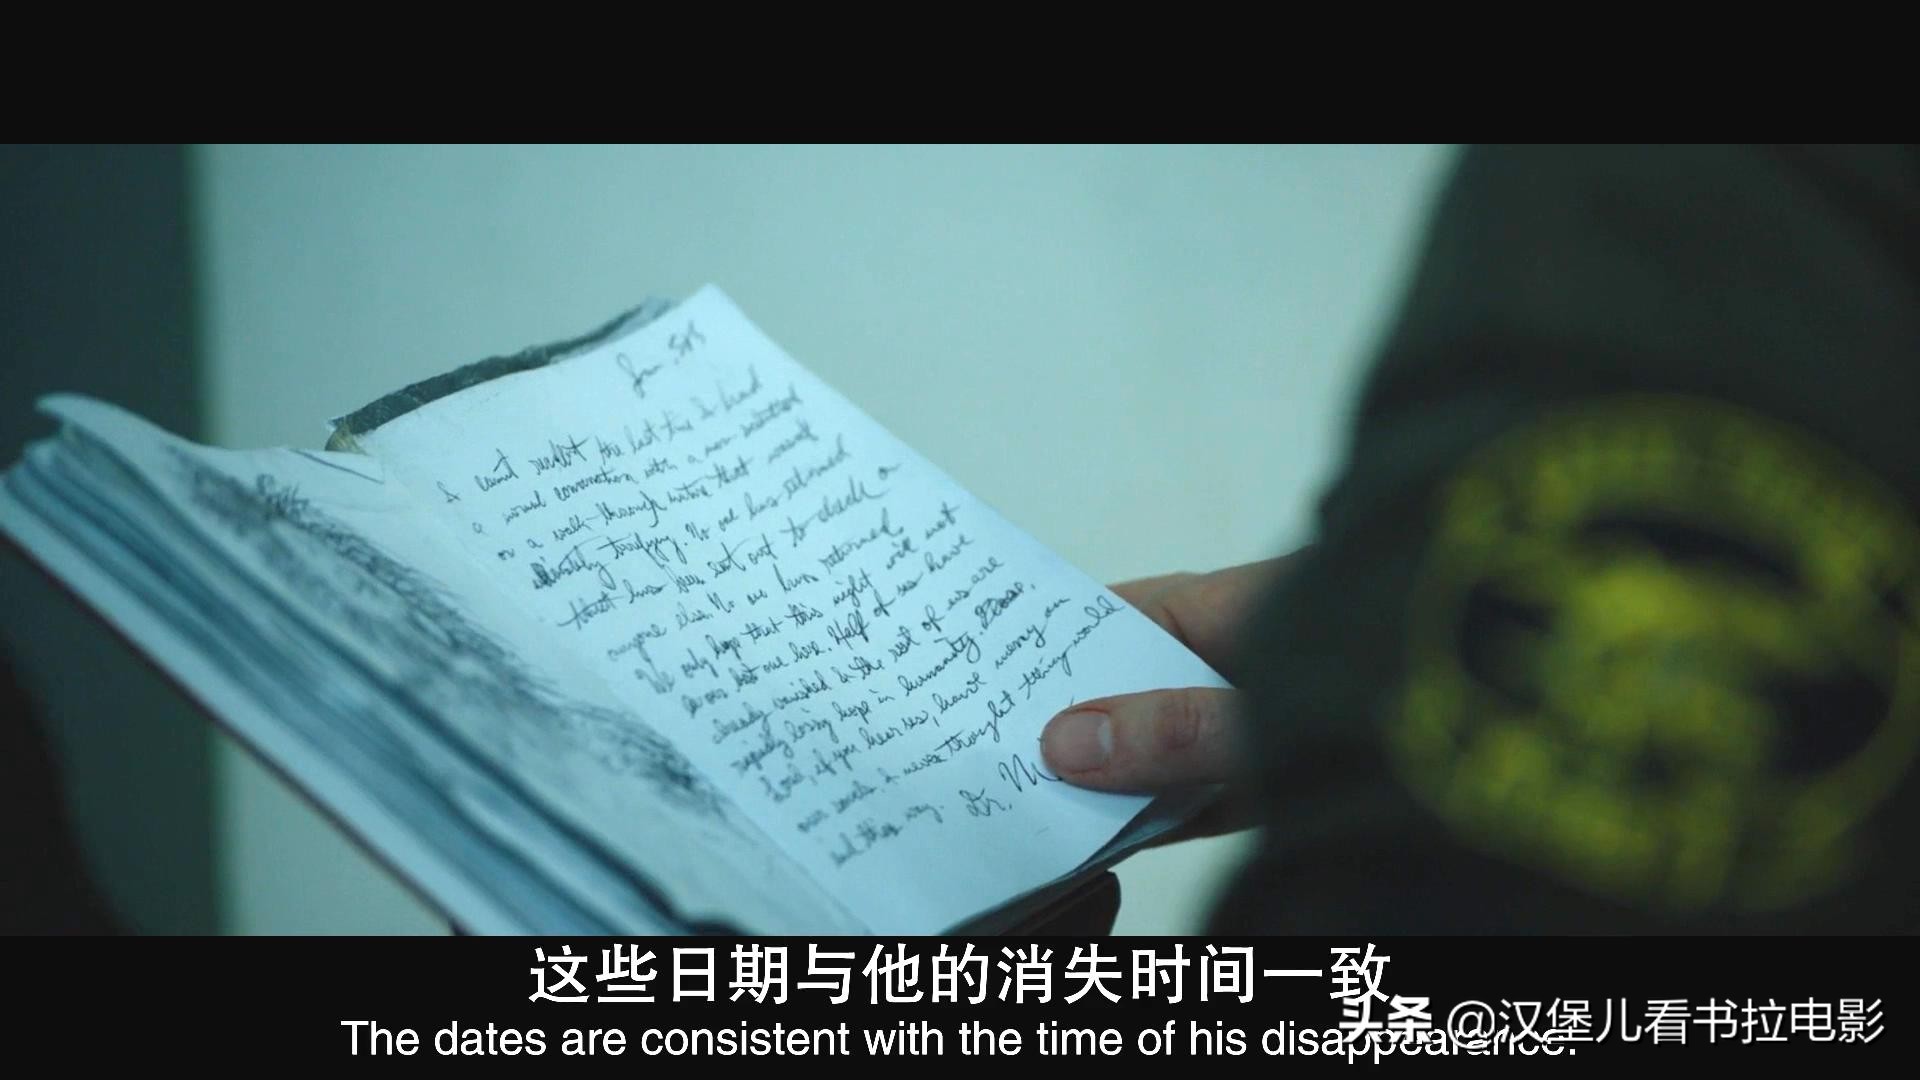 I can't recall the last time I had
a normal conversation with a non
or a walk through
terrifying. No one has returned
that has been sent out to check on
anyone else. No one has returned.
We only hope that this night will not
be our last one here. Half of us have
already vanished & the rest of us are
rapidly losing hope in humanity. Please,
Lord, if you hear us, have mercy on
our souls. I never thought the world
end this way. Dr. M
这些日期与他的消失时间一致
The dates are consistent with the time of his disappearance.
头条 @汉堡儿看书拉电影